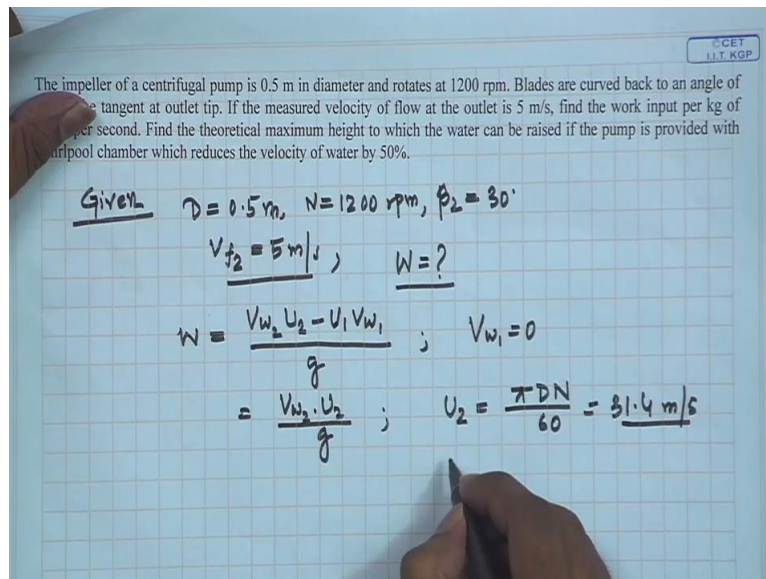 ©CET
I.I.T. KGP
The impeller of a centrifugal pump is 0.5 m in diameter and rotates at 1200 rpm. Blades are curved back to an angle of
tangent at outlet tip. If the measured velocity of flow at the outlet is 5 m/s, find the work input per kg of
per second. Find the theoretical maximum height to which the water can be raised if the pump is provided with
which reduces the velocity of water by 50%.
Given D = 0.5 m, N = 1200 rpm, β₂ = 30°
V_f₂ = 5 m/s, W = ?
W = (V_w₂ U₂ - U₁ V_w₁) / g ; V_w₁ = 0
= (V_w₂ . U₂) / g ; U₂ = πDN / 60 = 31.4 m/s